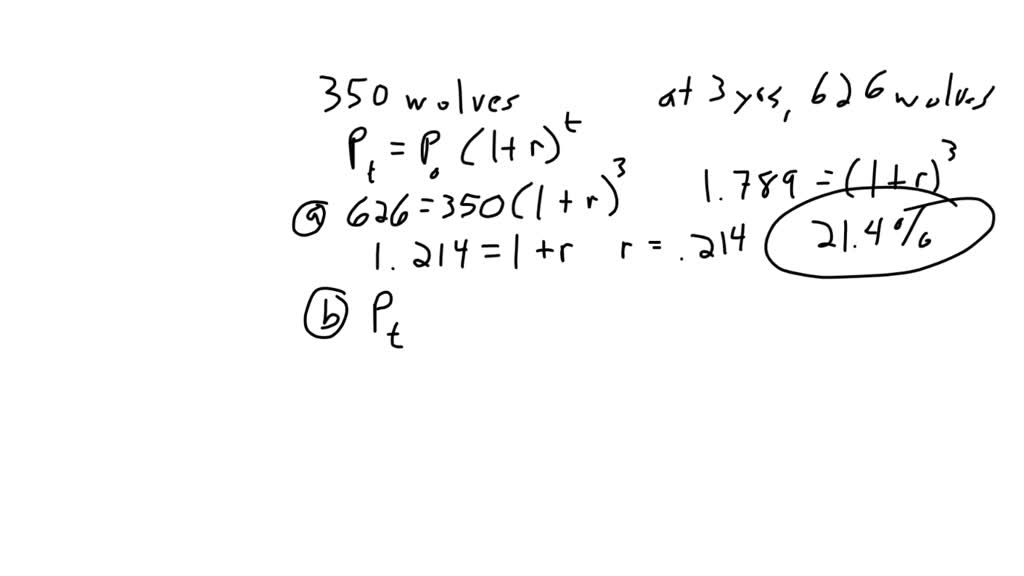 350 wolves at 3 yrs, 626 wolves
P_t = P_0 (1+r)^t
ⓐ 626 = 350(1+r)^3 1.789 = (1+r)^3
1.214 = 1+r r = .214 21.4%
ⓑ P_t